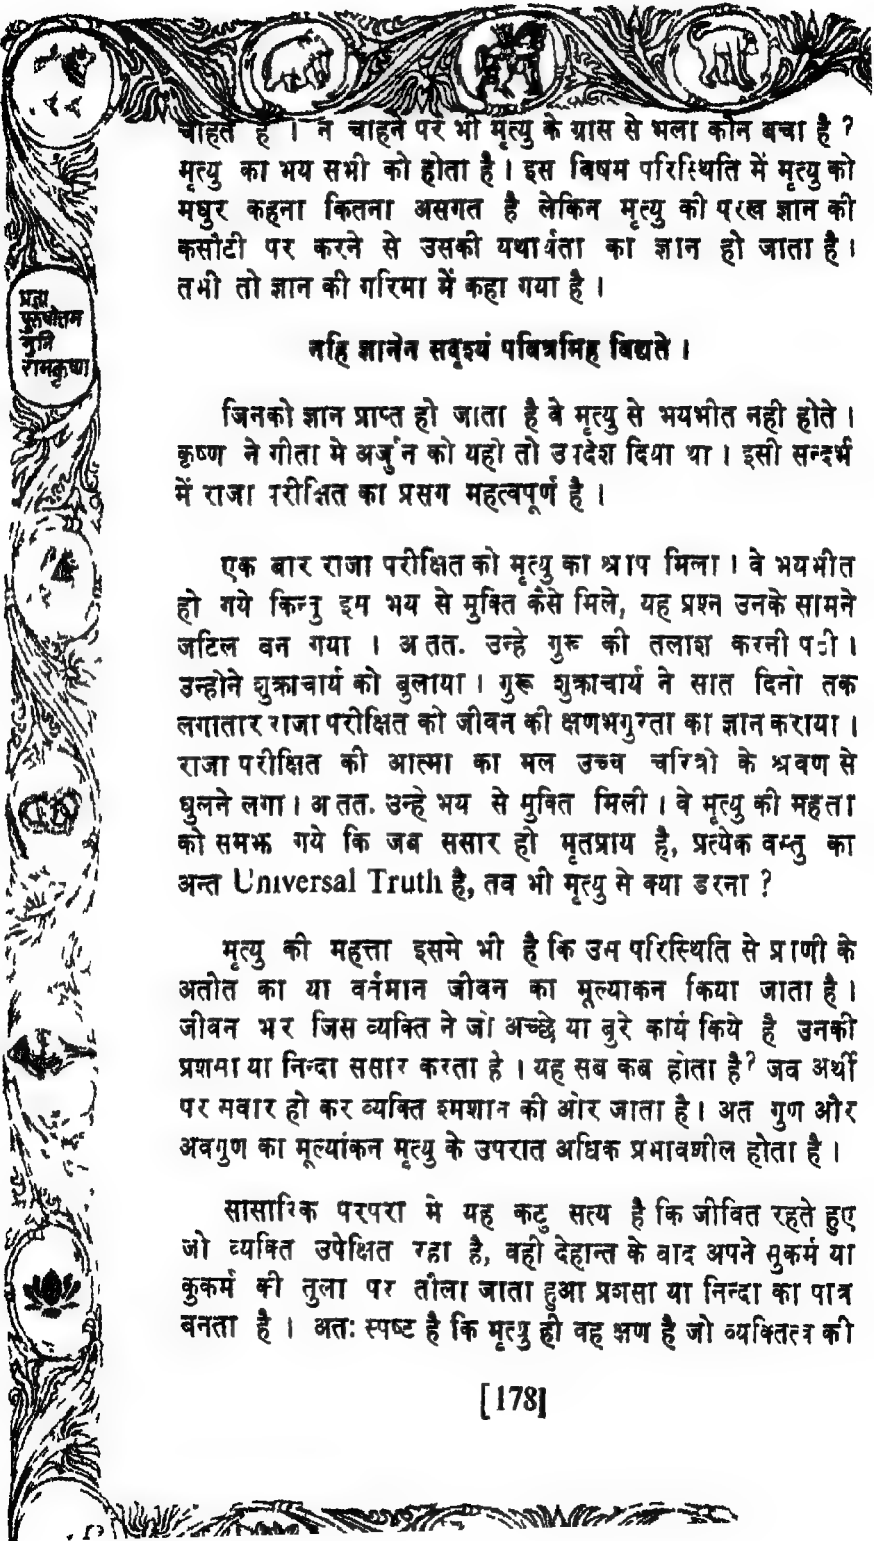 चाहते है । न चाहने पर भी मृत्यु के ग्रास से भला कौन बचा है ?
मृत्यु का भय सभी को होता है । इस विषम परिस्थिति में मृत्यु को
मधुर कहना कितना असगत है लेकिन मृत्यु की परख ज्ञान की
कसौटी पर करने से उसकी यथार्थता का ज्ञान हो जाता है ।
तभी तो ज्ञान की गरिमा में कहा गया है ।
प्रज्ञा
पुरुषोत्तम
मुनि
रामकृष्ण
नहि ज्ञानेन सदृश्यं पवित्रमिह विद्यते ।
जिनको ज्ञान प्राप्त हो जाता है वे मृत्यु से भयभीत नही होते ।
कृष्ण ने गीता मे अर्जुन को यही तो उपदेश दिया था । इसी सन्दर्भ
में राजा परीक्षित का प्रसग महत्वपूर्ण है ।
एक बार राजा परीक्षित को मृत्यु का श्राप मिला । वे भयभीत
हो गये किन्तु इस भय से मुक्ति कैसे मिले, यह प्रश्न उनके सामने
जटिल बन गया । अतत. उन्हे गुरू की तलाश करनी पडी ।
उन्होने शुक्राचार्य को बुलाया । गुरू शुक्राचार्य ने सात दिनो तक
लगातार राजा परीक्षित को जीवन की क्षणभगुरता का ज्ञान कराया ।
राजा परीक्षित की आत्मा का मल उच्च चरित्रो के श्रवण से
धुलने लगा । अतत. उन्हे भय से मुक्ति मिली । वे मृत्यु की महत्ता
को समझ गये कि जब ससार ही मृतप्राय है, प्रत्येक वस्तु का
अन्त Universal Truth है, तब भी मृत्यु से क्या डरना ?
मृत्यु की महत्ता इसमे भी है कि उस परिस्थिति से प्राणी के
अतीत का या वर्तमान जीवन का मूल्याकन किया जाता है ।
जीवन भर जिस व्यक्ति ने जो अच्छे या बुरे कार्य किये है उनकी
प्रशसा या निन्दा ससार करता है । यह सब कब होता है? जब अर्थी
पर सवार हो कर व्यक्ति श्मशान की ओर जाता है । अत गुण और
अवगुण का मूल्यांकन मृत्यु के उपरात अधिक प्रभावशील होता है ।
सासारिक परपरा मे यह कटु सत्य है कि जीवित रहते हुए
जो व्यक्ति उपेक्षित रहा है, वही देहान्त के बाद अपने सुकर्म या
कुकर्म की तुला पर तौला जाता हुआ प्रशसा या निन्दा का पात्र
बनता है । अतः स्पष्ट है कि मृत्यु ही वह क्षण है जो व्यक्तित्व की
[178]